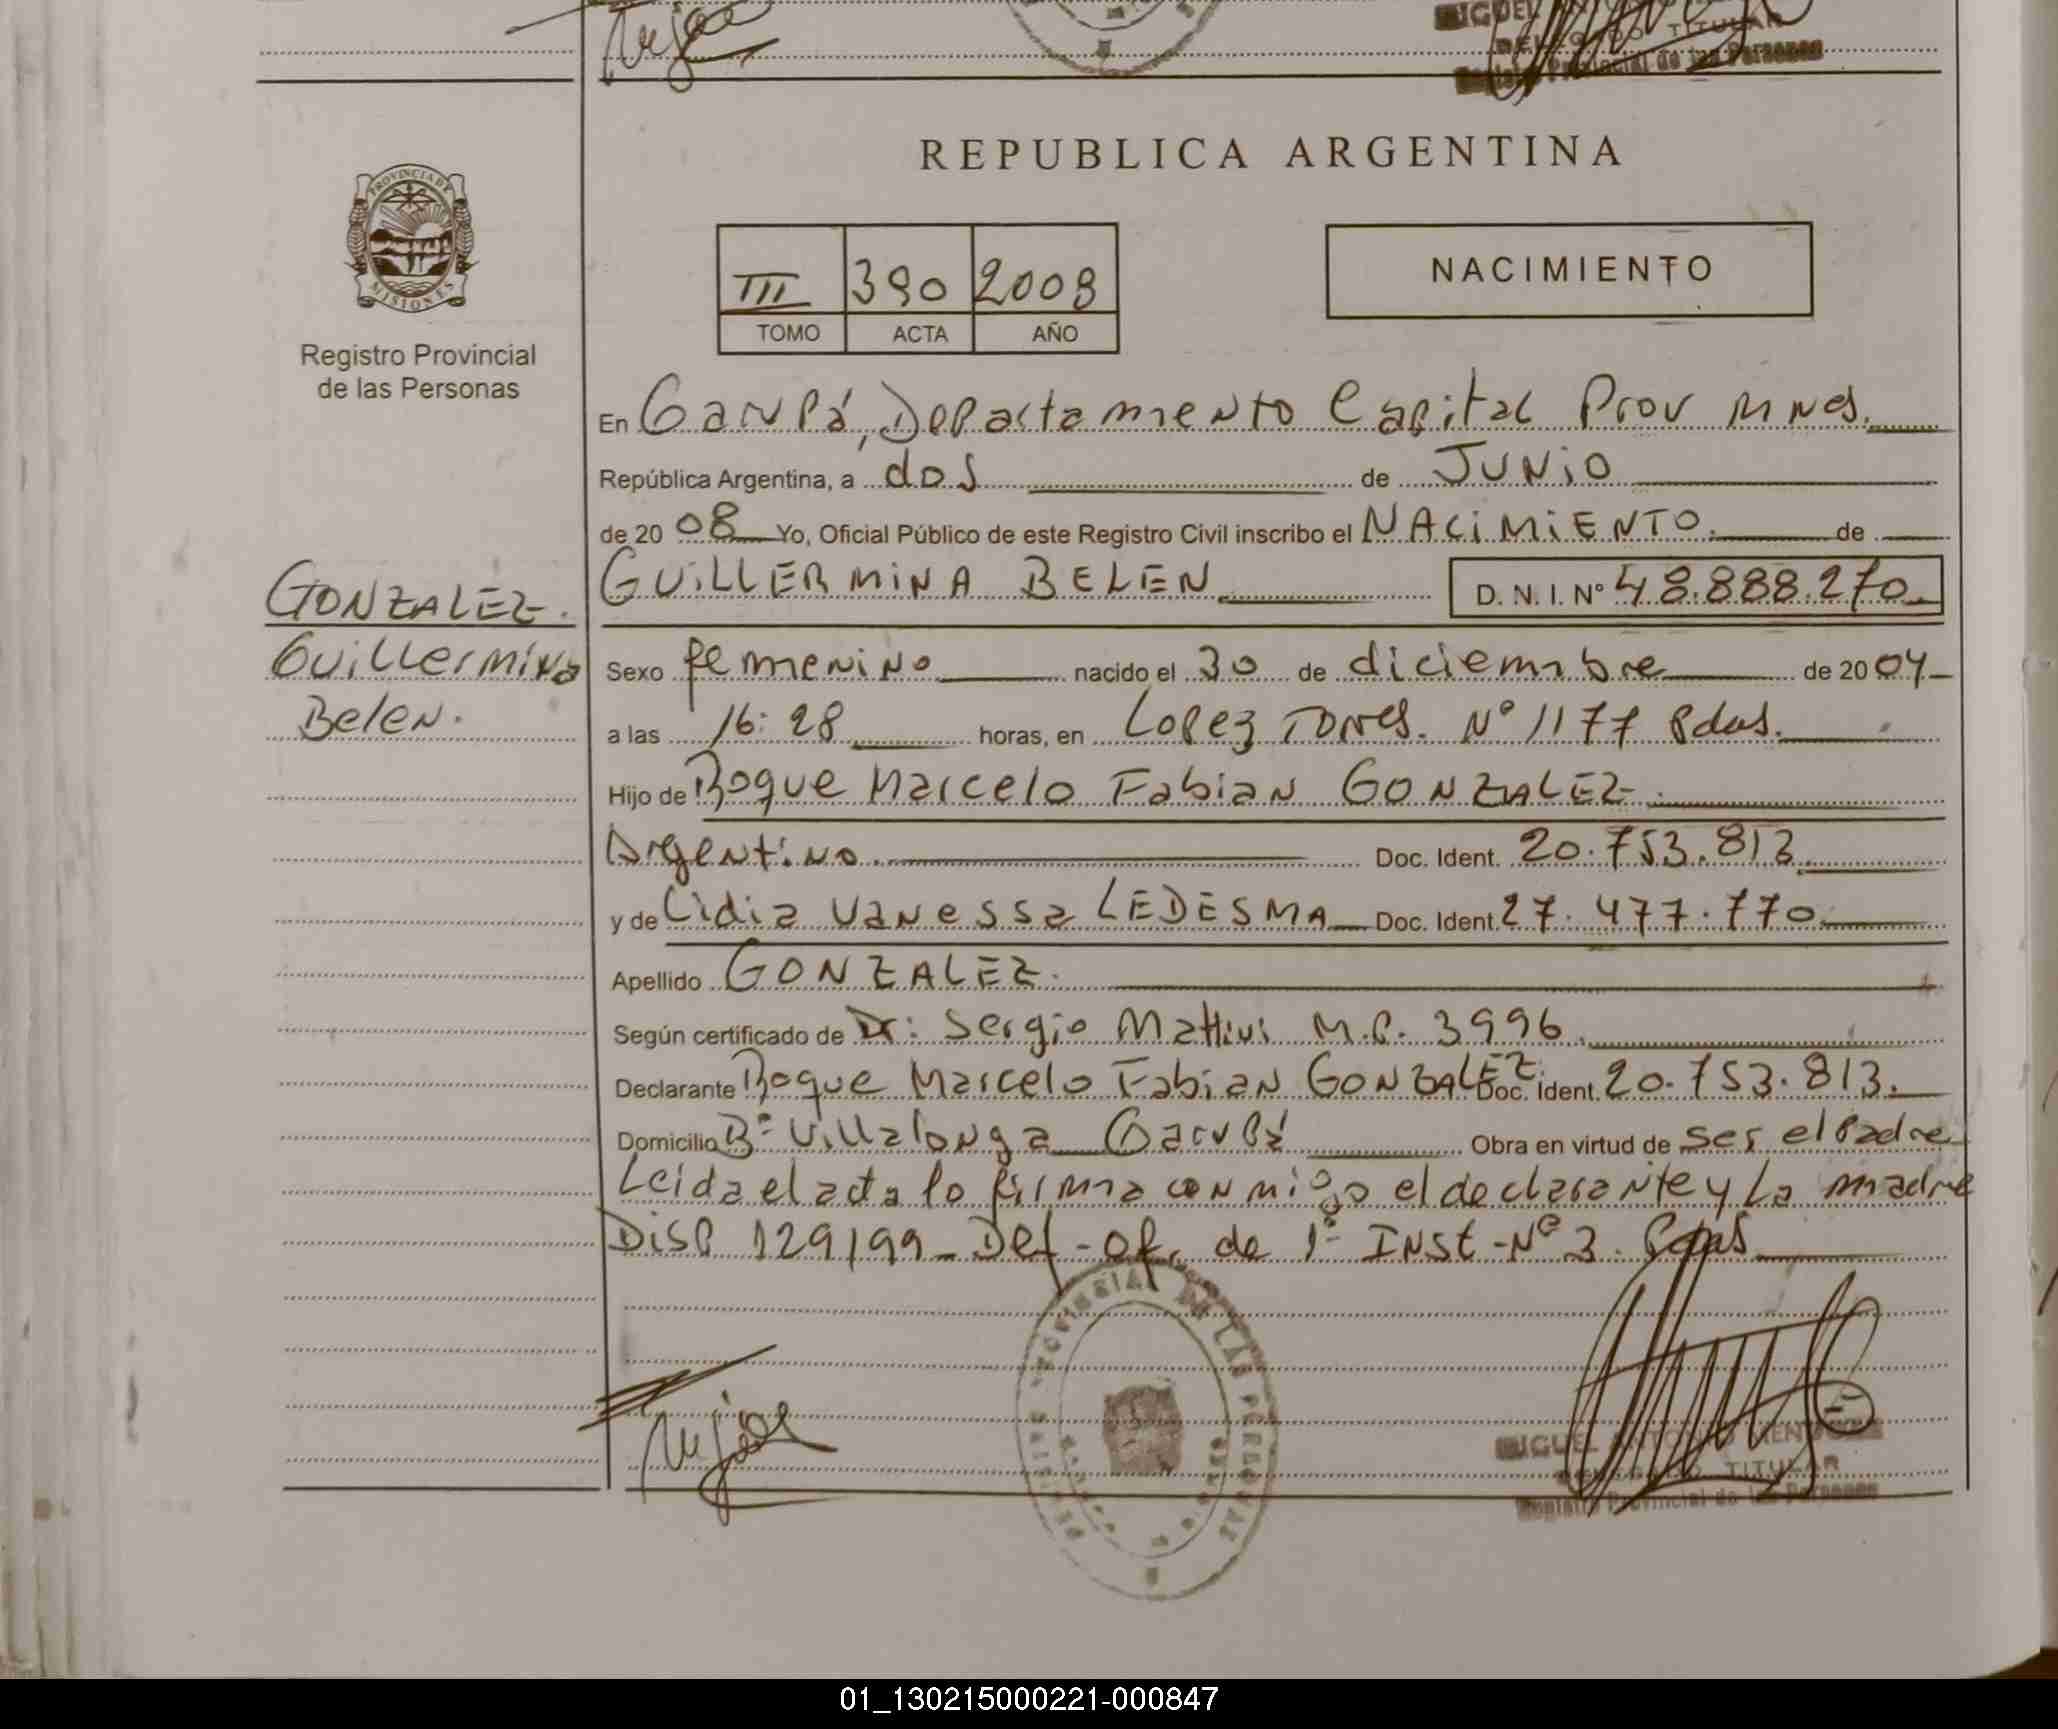 TITULAR
Registro Provincial de las Personas
REPUBLICA ARGENTINA
PROVINCIA DE
MISIONES
Registro Provincial
de las Personas
III 390 2008
TOMO ACTA AÑO
NACIMIENTO
En Garupá, Departamento Capital Prov Mnes.
República Argentina, a dos de JUNIO
de 20 08 Yo, Oficial Público de este Registro Civil inscribo el NACIMIENTO. de
GUILLERMINA BELEN D. N. I. Nº 48.888.270
GONZALEZ.
Guillermina
Belen.
Sexo femenino nacido el 30 de diciembre de 20 04
a las 16:28 horas, en Lopez Torres. Nº 1177 Pdas.
Hijo de Roque Marcelo Fabian GONZALEZ
Argentino. Doc. Ident. 20.753.813
y de Lidia Vanessa LEDESMA Doc. Ident. 27.477.770
Apellido GONZALEZ.
Según certificado de Dr: Sergio Mattivi M.P. 3996.
Declarante Roque Marcelo Fabian GONZALEZ. Doc. Ident. 20.753.813.
Domicilio Bº Villalonga Garupá Obra en virtud de ser el Padre
Leida el acta lo firma conmigo el declarante y La madre
Disp 129/99 - Def - of. de 1º Inst - Nº 3. Pdas
PROVINCIAL DE LAS PERSONAS
MIGUEL ANTONIO
TITULAR
Registro Provincial de las Personas
01_130215000221-000847